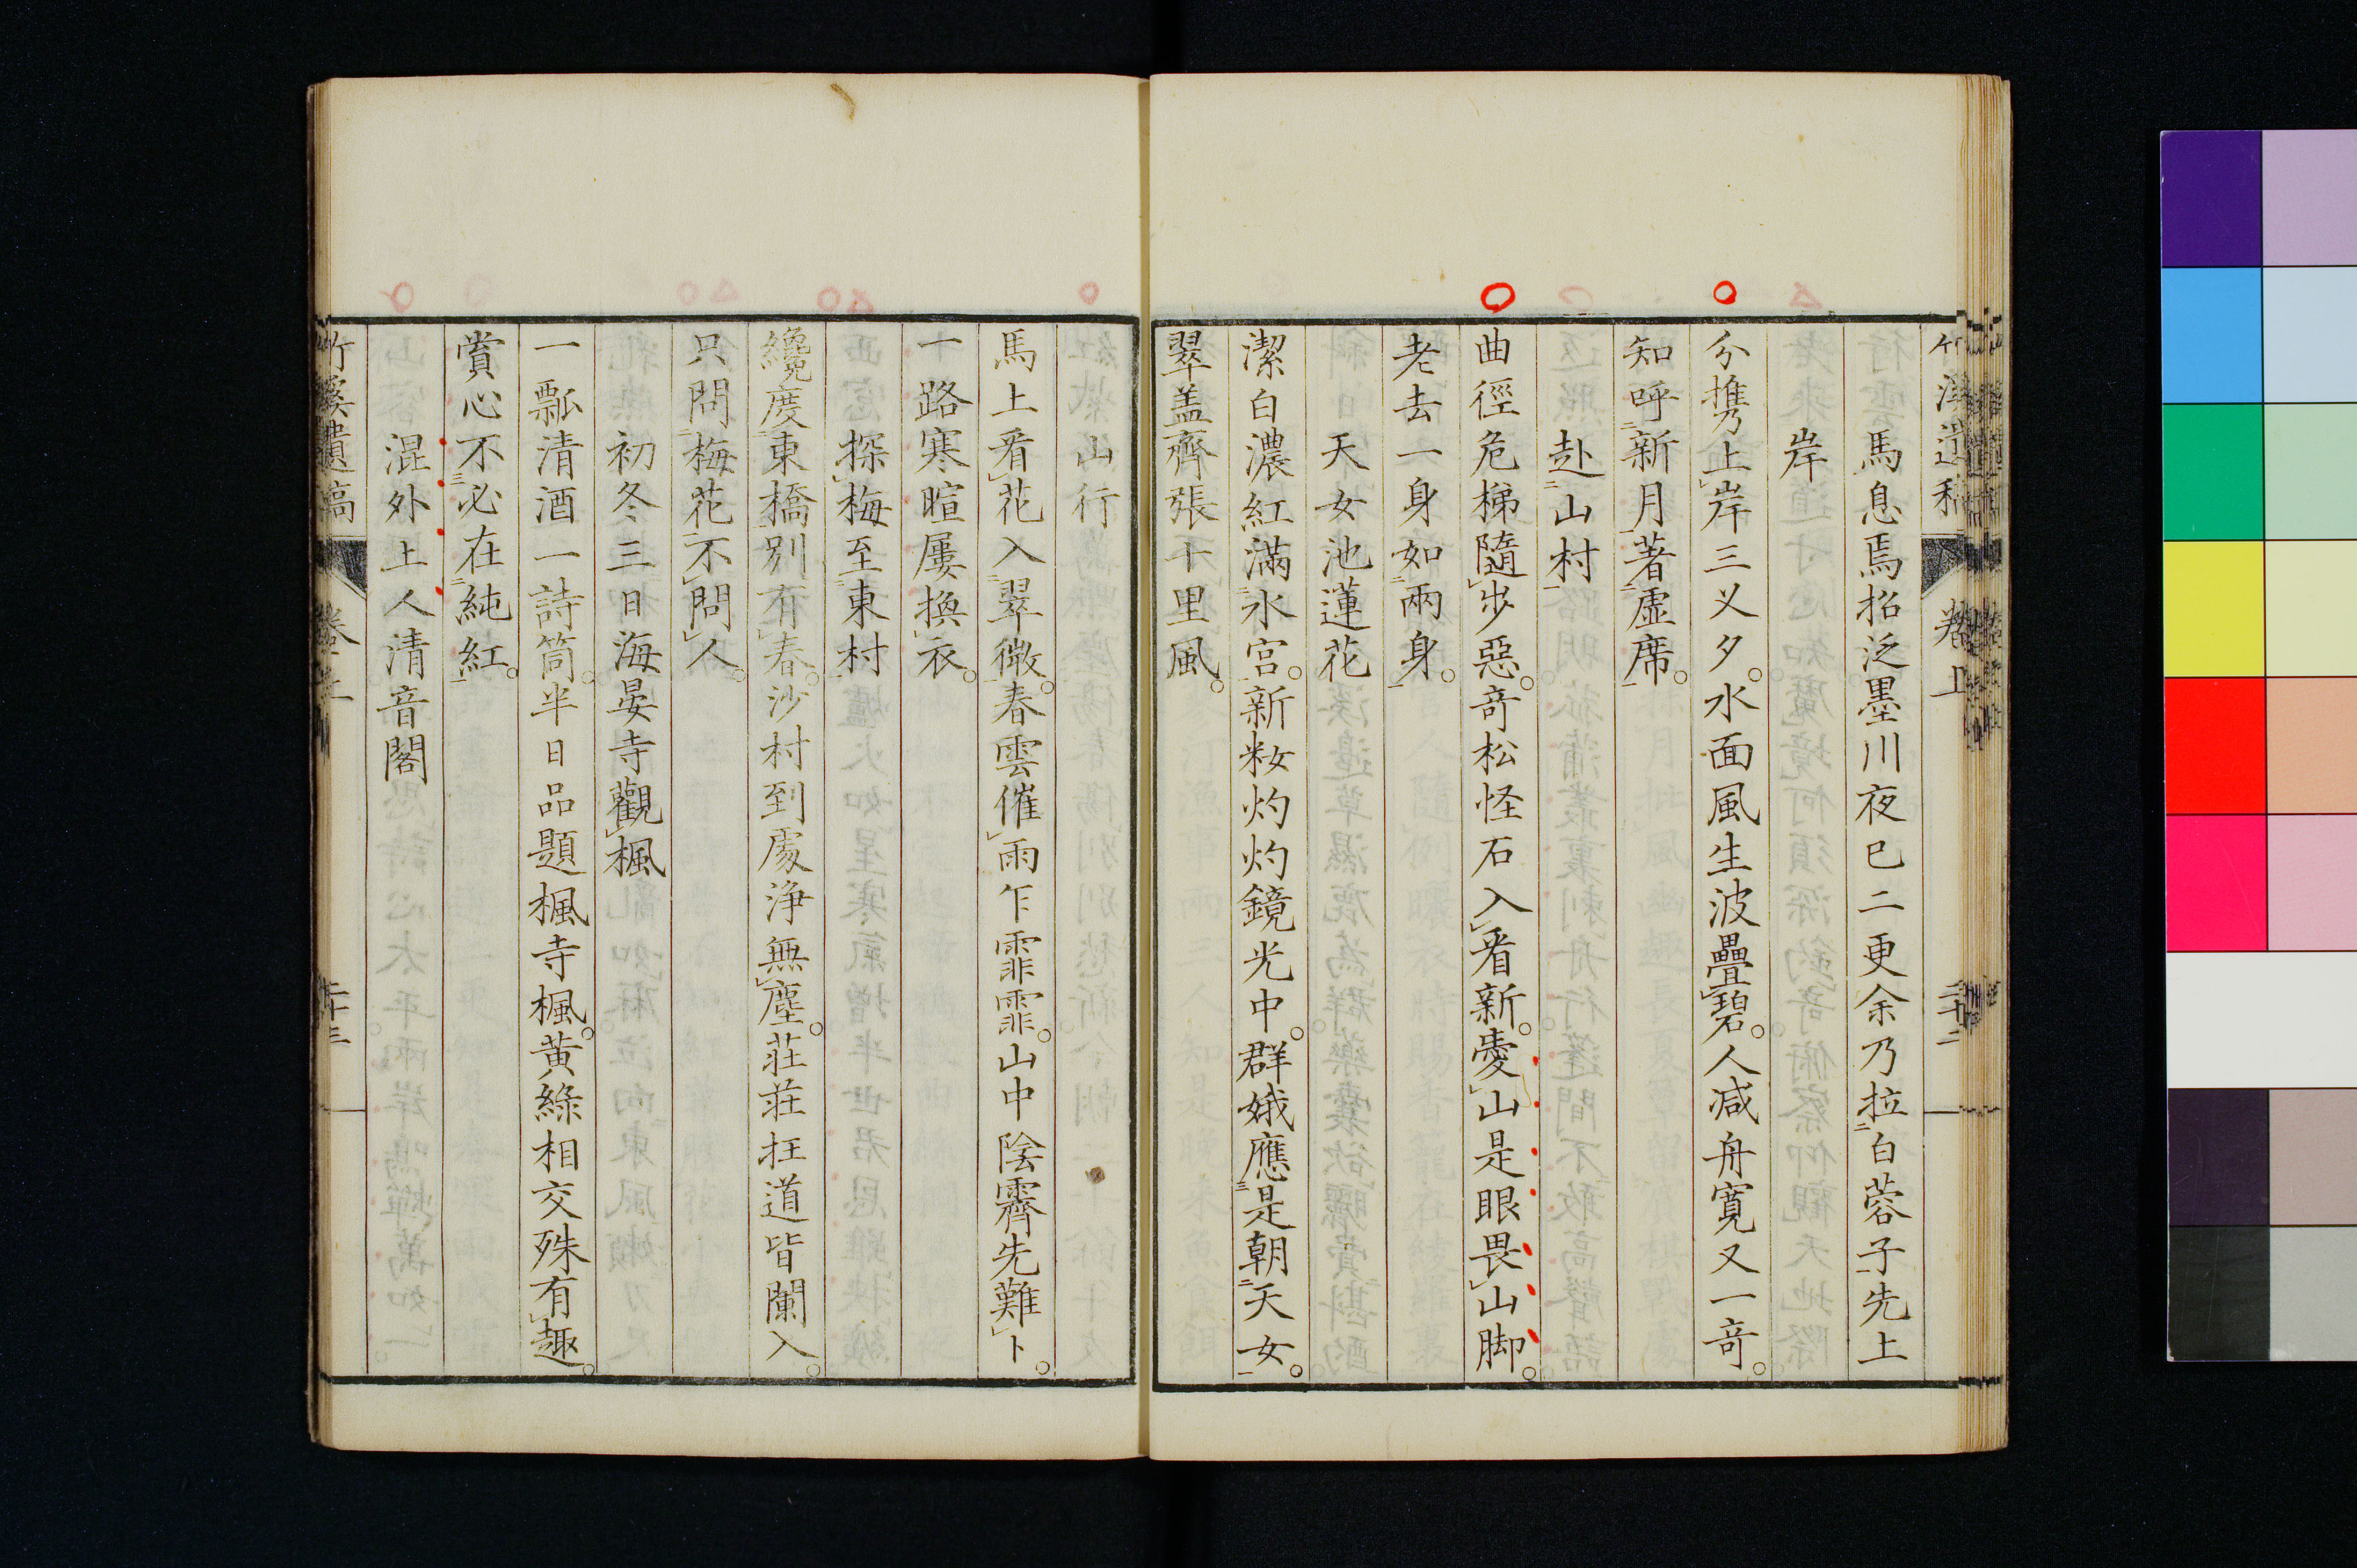 馬息焉招泛墨川夜已二更余乃拉二白蓉子一先上
岸
分携上岸三乂夕。水面風生波疊碧。人减舟寛又一奇。
知呼二新月一著二虚席一。
赴二山村一
曲徑危梯隨步惡。奇松怪石入看新。憂山是眼畏山脚。
老去一身如二兩身一。
天女池蓮花
潔白濃紅滿二水宮一。新粧灼灼鏡光中。群娥應三是朝二天女一。
翠盖齊張十里風。
山行
馬上看花入二翠微一。春雲催雨乍霏霏。山中陰霽先難卜。
一路寒暄屢換衣。
探梅至二東村一
纔度二東橋一別有春。沙村到處淨無塵。莊莊抂道皆闌入。
只問二梅花一不問人。
初冬三日海晏寺觀楓
一瓢清酒一詩筒。半日品題楓寺楓。黄綠相交殊有趣。
賞心不三必在二純紅一。
混外上人清音閣
竹溪遺稿 卷上 二十三